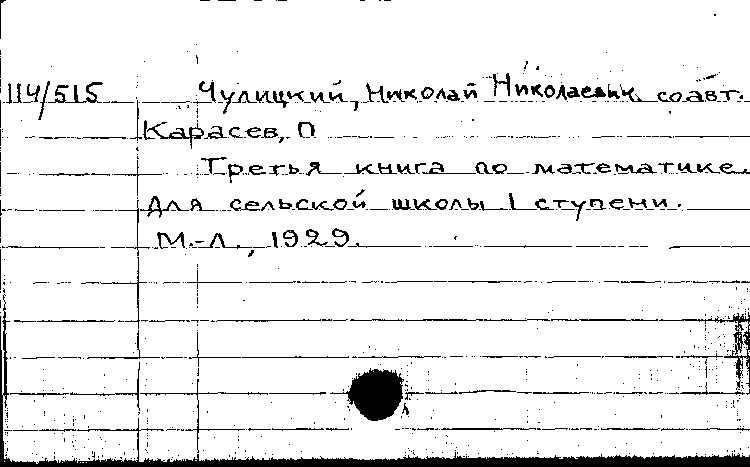 114/515 Чулицкий, Николай Николаевич, соавт.
Карасев, П
Третья книга по математике.
Для сельской школы I ступени.
М.-Л., 1929.